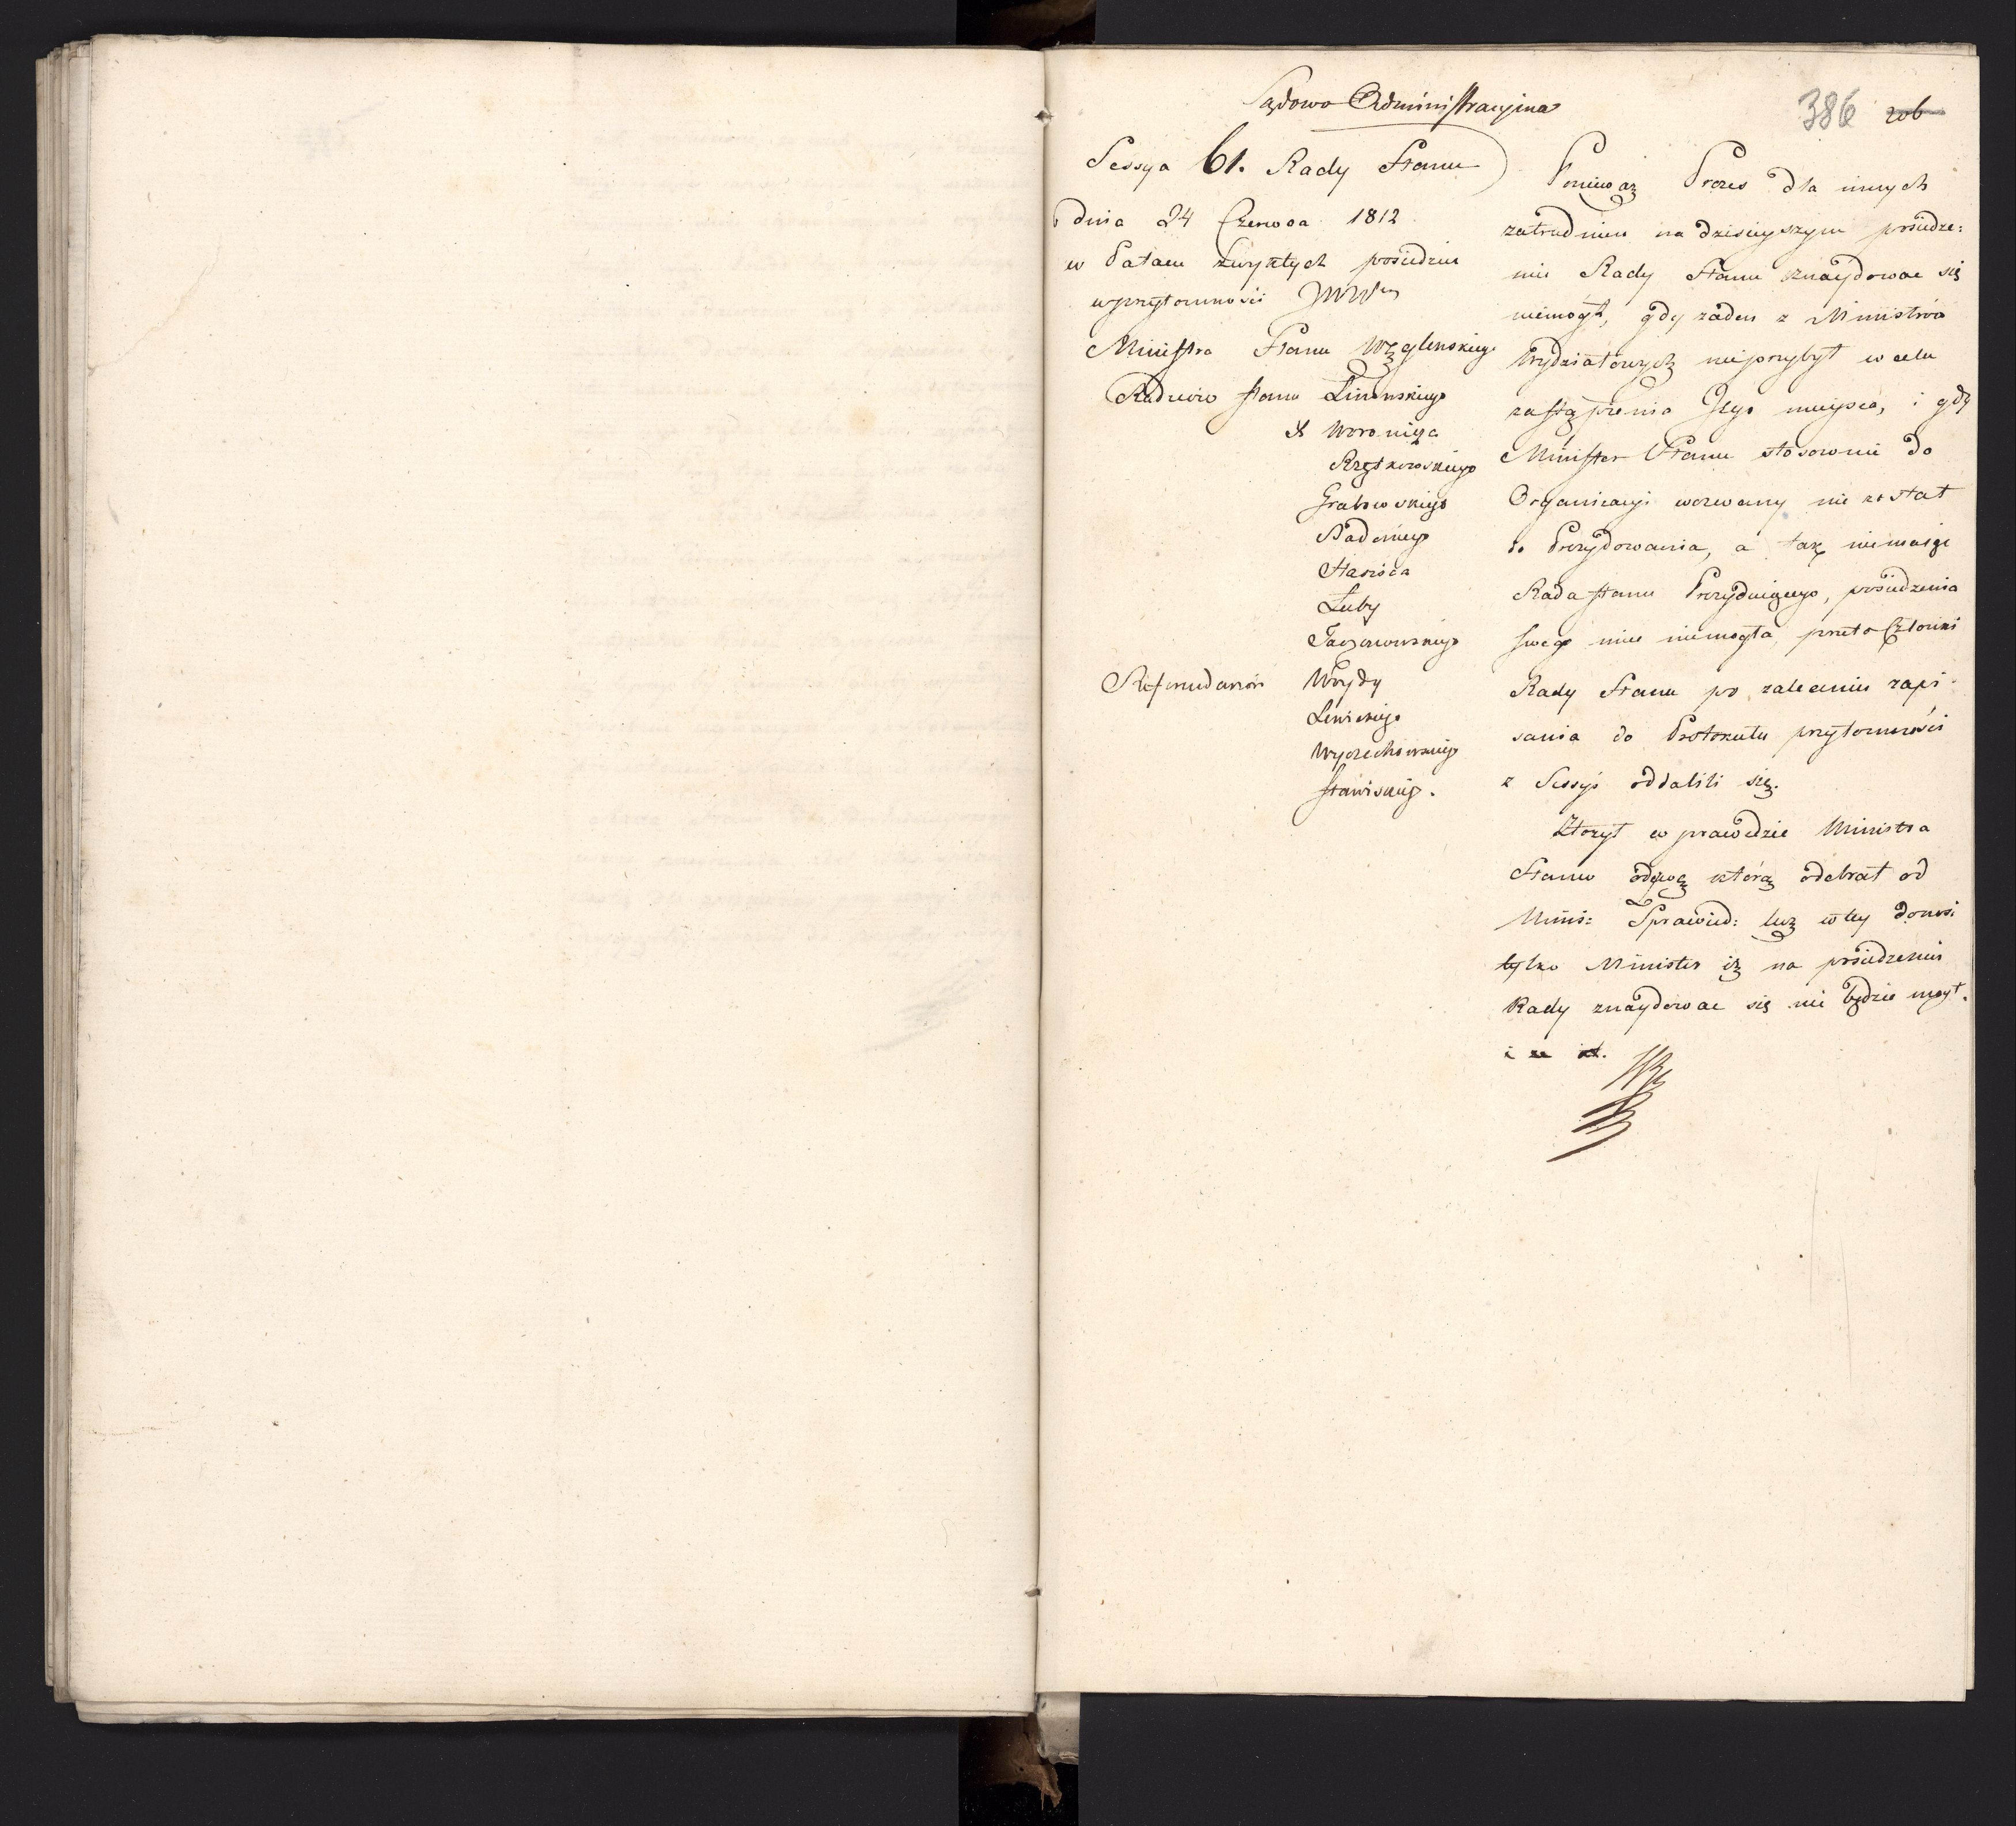 Sądowo Administracyina
386 206
Sessya 61. Rady Stanu
dnia 24 Czerwca 1812
w Pałacu zwykłych posiedzeń
w przytomności JWW
Ministra Stanu Węgleńskiego
Radców Stanu Linowskiego
X Woronicza
Rzętkowskiego
Grabowskiego
Badeniego
Stasica
Łuby
Taczanowskiego
Referendarzów Woydy
Lewickiego
Wyczechowskiego
Stawiskiego.
Ponieważ Prezes dla innych
zatrudnień na dzisieyszym posiedze:
niu Rady Stanu znaydowac się
niemogł, gdy żaden z Ministrów
Wydziałowych nieprzybył w celu
zastąpienia Jego mieysca, i gdy
Minister Stanu stosownie do
Organizacyi wezwany nie został
do Prezydowania, a tak niemaiąc
Rada Stanu Prezyduiącego, posiedzenia
swego mieć niemogła, przeto Członki
Rady Stanu po zaleceniu zapi
sania do Protokułu przytomności
z Sessyi oddalili się.
Złożył w prawdzie Ministra
Stanu odezwę którą odebrał od
Minis: Sprawied: lecz w tey donosi
tylko Minister iż na posiedzeniu
Rady znaydowac się nie będzie mogł.
i ze